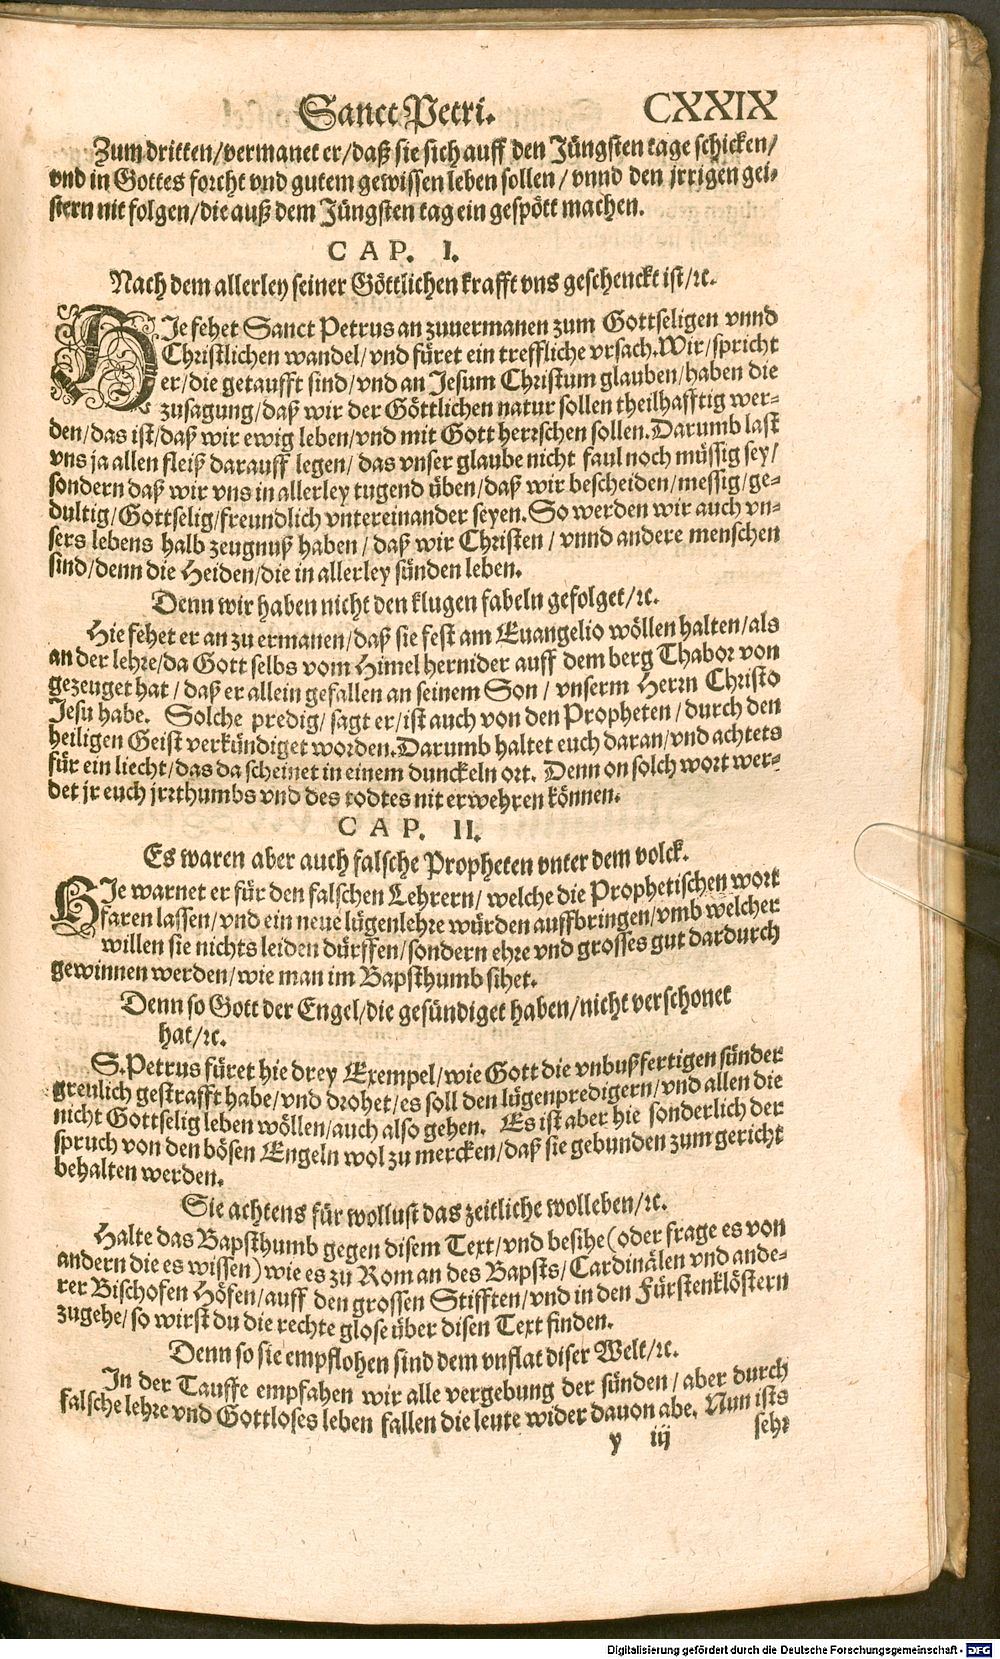 Sanct Petri. CXXIX
Zum dritten/vermanet er/daß sie sich auff den Jüngsten tage schicken/
vnd in Gottes forcht vnd gutem gewissen leben sollen/vnnd den jrrigen gei-
stern nit folgen/die auß dem Jüngsten tag ein gespött machen.
CAP. I.
Nach dem allerley seiner Göttlichen krafft vns geschenckt ist/ꝛc.
HIe fehet Sanct Petrus an zuuermanen zum Gottseligen vnnd
Christlichen wandel/vnd füret ein treffliche vrsach. Wir/spricht
er/die getaufft sind/vnd an Jesum Christum glauben/haben die
zusagung/daß wir der Göttlichen natur sollen theilhafftig wer-
den/das ist/daß wir ewig leben/vnd mit Gott herrschen sollen. Darumb last
vns ja allen fleiß darauff legen/das vnser glaube nicht faul noch müssig sey/
sondern daß wir vns in allerley tugend üben/daß wir bescheiden/messig/ge-
dultig/Gottselig/freundlich vntereinander seyen. So werden wir auch vn-
sers lebens halb zeugnuß haben/daß wir Christen/vnnd andere menschen
sind/denn die Heiden/die in allerley sünden leben.
Denn wir haben nicht den klugen fabeln gefolget/ꝛc.
Hie fehet er an zu ermanen/daß sie fest am Euangelio wöllen halten/als
an der lehre/da Gott selbs vom Himel hernider auff dem berg Thabor von
gezeuget hat/daß er allein gefallen an seinem Son/vnserm Herrn Christo
Jesu habe. Solche predig/sagt er/ist auch von den Propheten/durch den
heiligen Geist verkündiget worden. Darumb haltet euch daran/vnd achtets
für ein liecht/das da scheinet in einem dunckeln ort. Denn on solch wort wer-
det jr euch jrrthumbs vnd des todtes nit erwehren können.
CAP. II.
Es waren aber auch falsche Propheten vnter dem volck.
HIe warnet er für den falschen Lehrern/welche die Prophetischen wort
faren lassen/vnd ein neue lügenlehre würden auffbringen/vmb welcher
willen sie nichts leiden dürffen/sondern ehre vnd grosses gut dardurch
gewinnen werden/wie man im Bapsthumb sihet.
Denn so Gott der Engel/die gesündiget haben/nicht verschonet
hat/ꝛc.
S. Petrus füret hie drey Exempel/wie Gott die vnbußfertigen sünder
greulich gestrafft habe/vnd drohet/es soll den lügenpredigern/vnd allen die
nicht Gottselig leben wöllen/auch also gehen. Es ist aber hie sonderlich der
spruch von den bösen Engeln wol zu mercken/daß sie gebunden zum gericht
behalten werden.
Sie achtens für wollust das zeitliche wolleben/ꝛc.
Halte das Bapsthumb gegen disem Text/vnd besihe (oder frage es von
andern die es wissen) wie es zu Rom an des Bapsts/Cardinälen vnd ande-
rer Bischofen Höfen/auff den grossen Stifften/vnd in den Fürstenklöstern
zugehe/so wirst du die rechte glose über disen Text finden.
Denn so sie empflohen sind dem vnflat diser Welt/ꝛc.
In der Tauffe empfahen wir alle vergebung der sünden/aber durch
falsche lehre vnd Gottloses leben fallen die leute wider dauon abe. Nun ists
y iij sehr
Digitalisierung gefördert durch die Deutsche Forschungsgemeinschaft - DFG